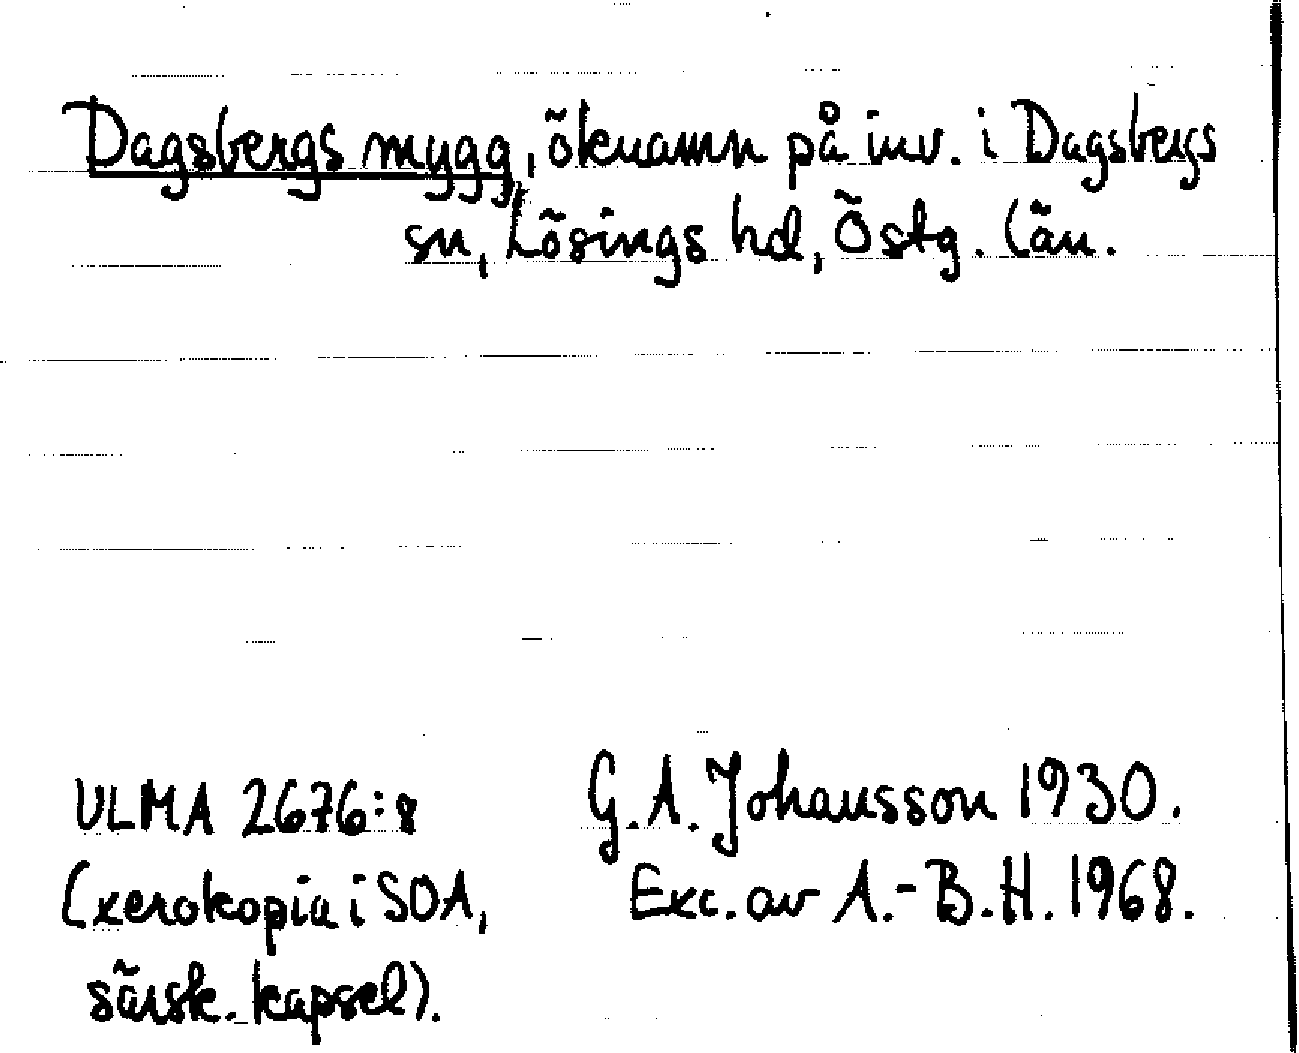 Dagsbergs mygg, öknamn på inv. i Dagsbergs
sn, Lösings hd, Östg. län.
ULMA 2676:8
(xerokopia i SOA,
särsk. kapsel).
G.A. Johansson 1930.
Exc. av A.-B.H. 1968.